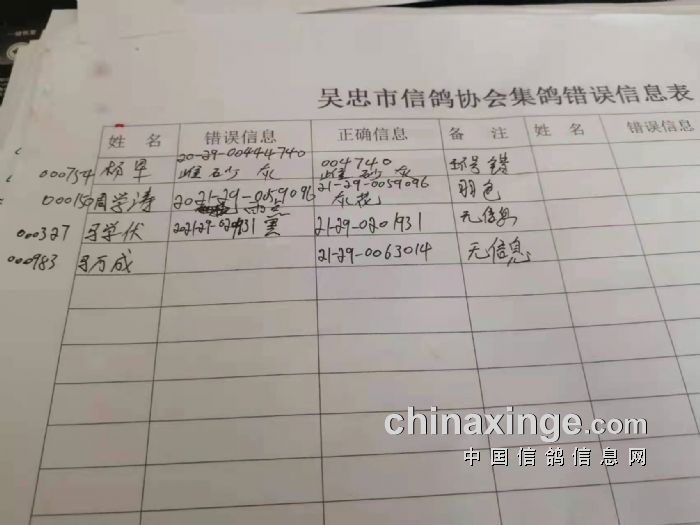 吴忠市信鸽协会集鸽错误信息表
姓 名 错误信息 正确信息 备 注 姓 名 错误信息
000754 杨军 20-29-00444740 雌 砂 灰 004740 雌 砂 灰 环号错
000150 周学涛 2021-29-0059096 21-29-0059096 灰花 羽色
000327 马学伏 2021-29-0201931 黑 21-29-0201931 无信息
000983 马万成 21-29-0063014 无信息
chinaxinge.com
中国信鸽信息网